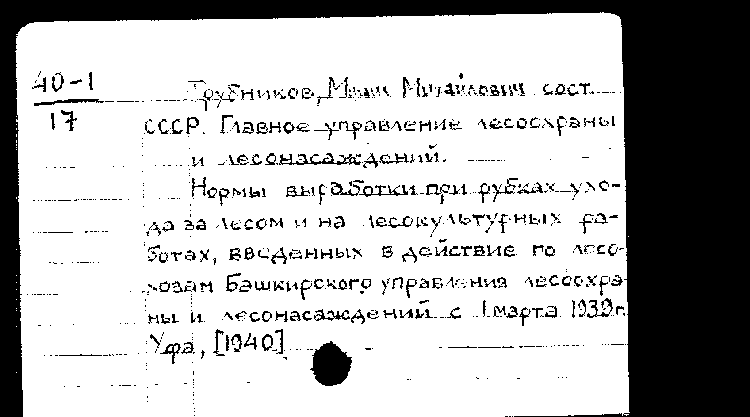 40-1
17
Трубников, Михайлович сост.
СССР. Главное управление лесоохраны
и лесонасаждений.
Нормы выработки при рубках ухо-
да за лесом и на лесокультурных ра-
ботах, введенных в действие по лесо-
хозам Башкирского управления лесоохра-
ны и лесонасаждений с 1 марта 1939 г.
Уфа, [1940]